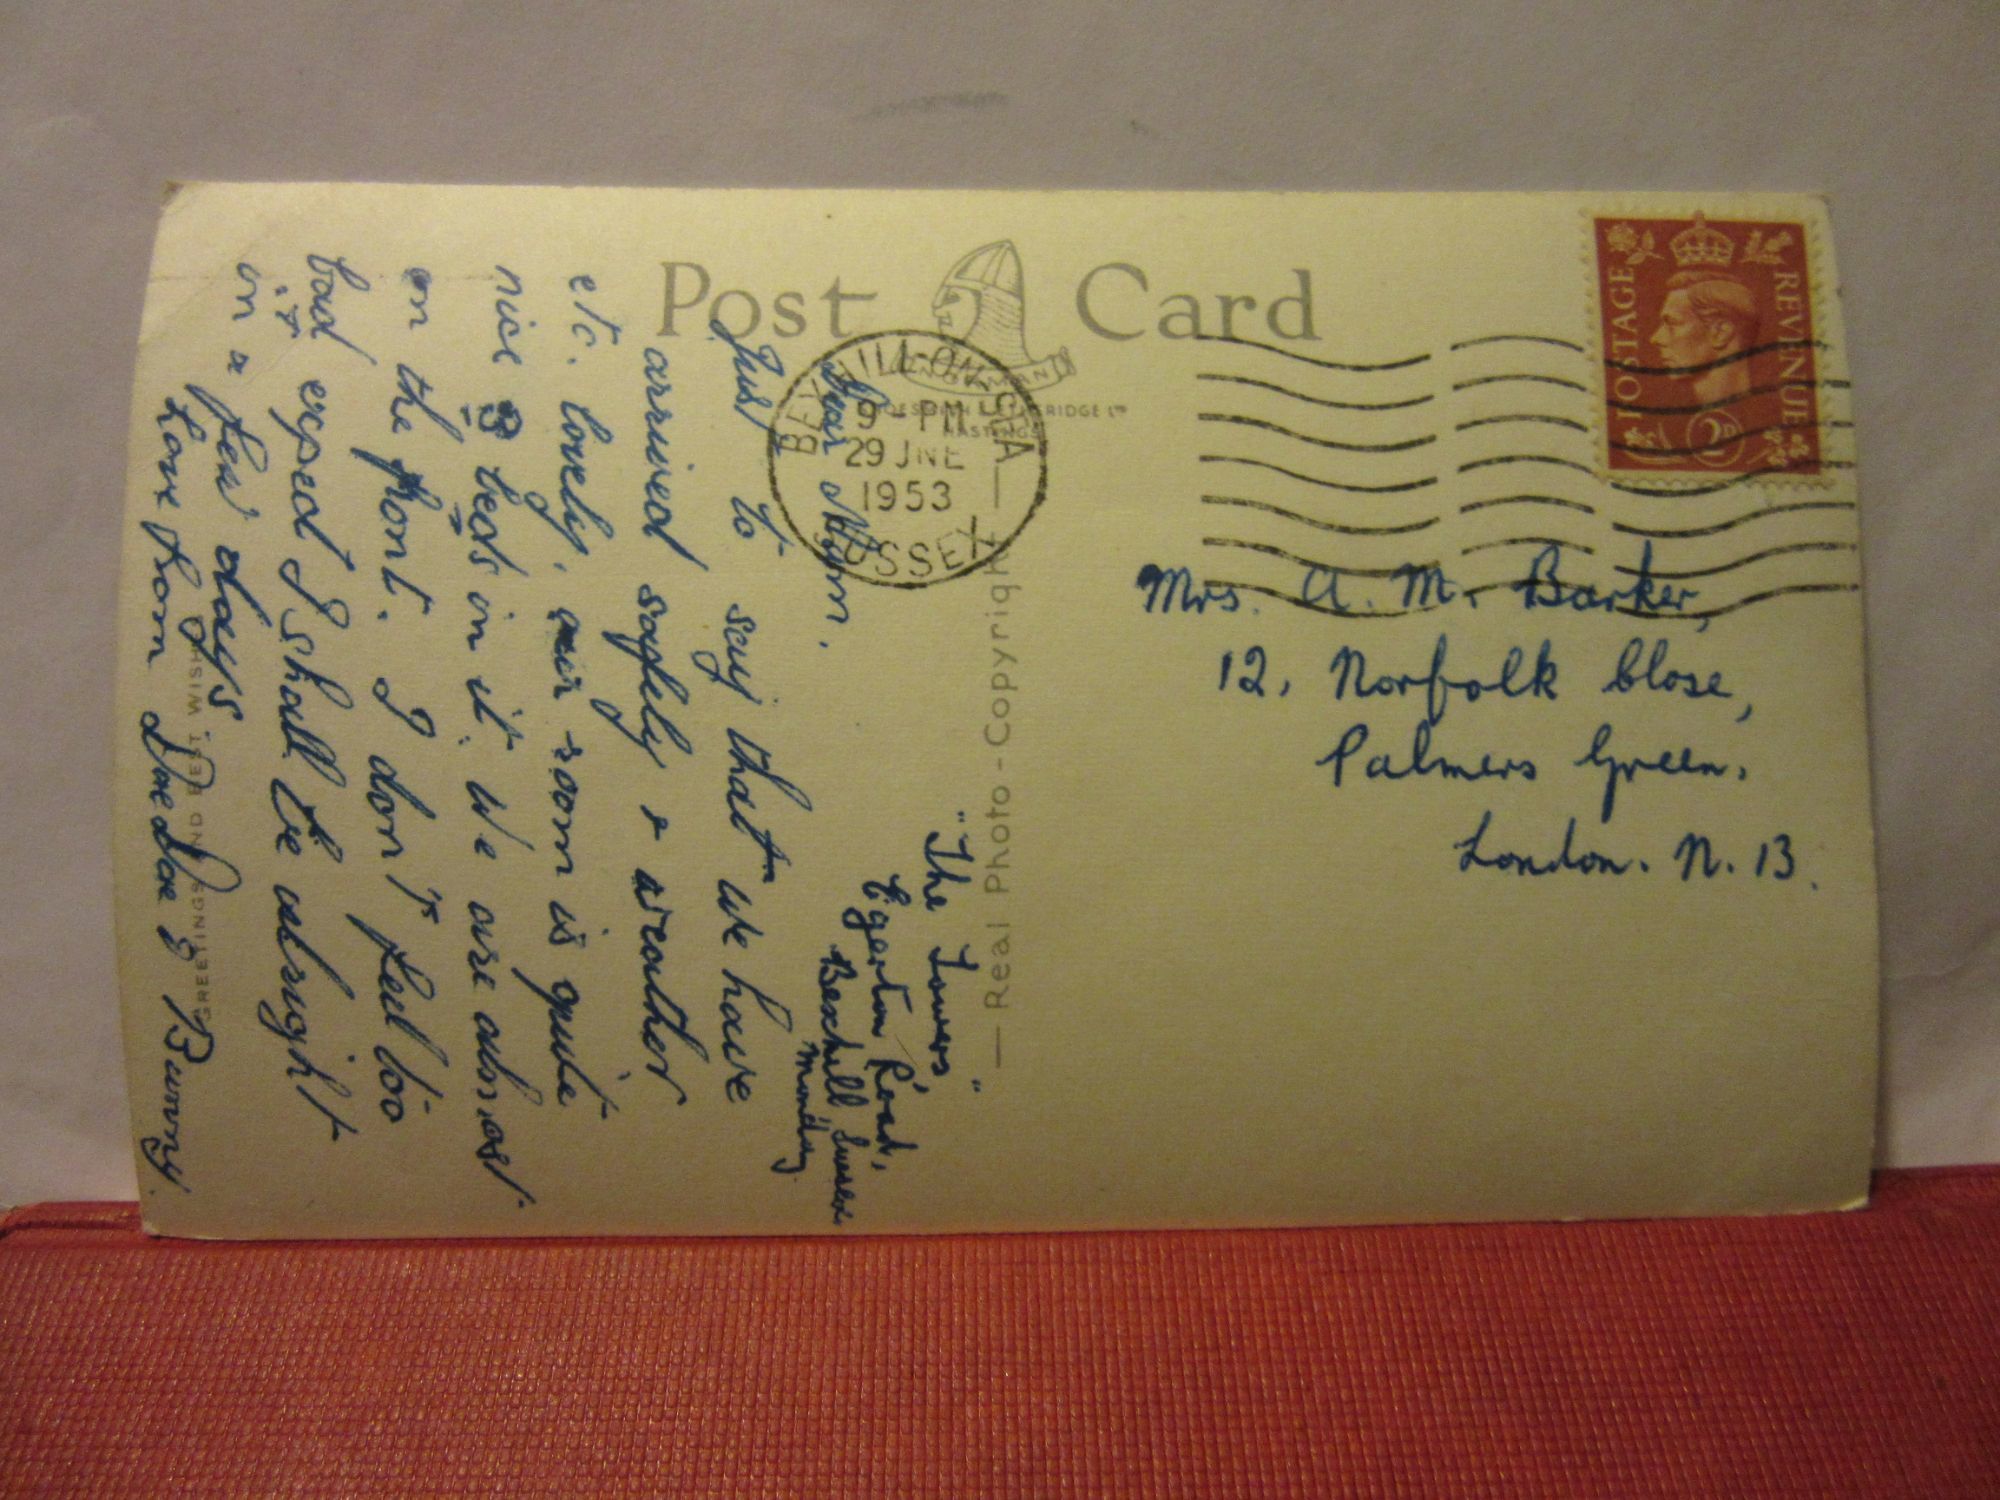 Post Card
NORMAN
SHOESMITH & ETHERIDGE LTD
HASTINGS
BEXHILL-ON-SEA
9 - PM
29 JNE
1953
SUSSEX
POSTAGE
REVENUE
2D
Mrs. A. M. Barker,
12, Norfolk Close,
Palmers Green,
London. N. 13.
— Real Photo - Copyright —
GREETINGS AND BEST WISH
"The Towers"
Egerton Road,
Bexhill, Sussex.
Monday
Dear Mum.
Just to say that we have
arrived safely & weather
etc. lovely, our room is quite
nice 3 beds in it. We are almost
on the front. I don't feel too
bad expect I shall be alright
in a few days.
Love from & Bunny.